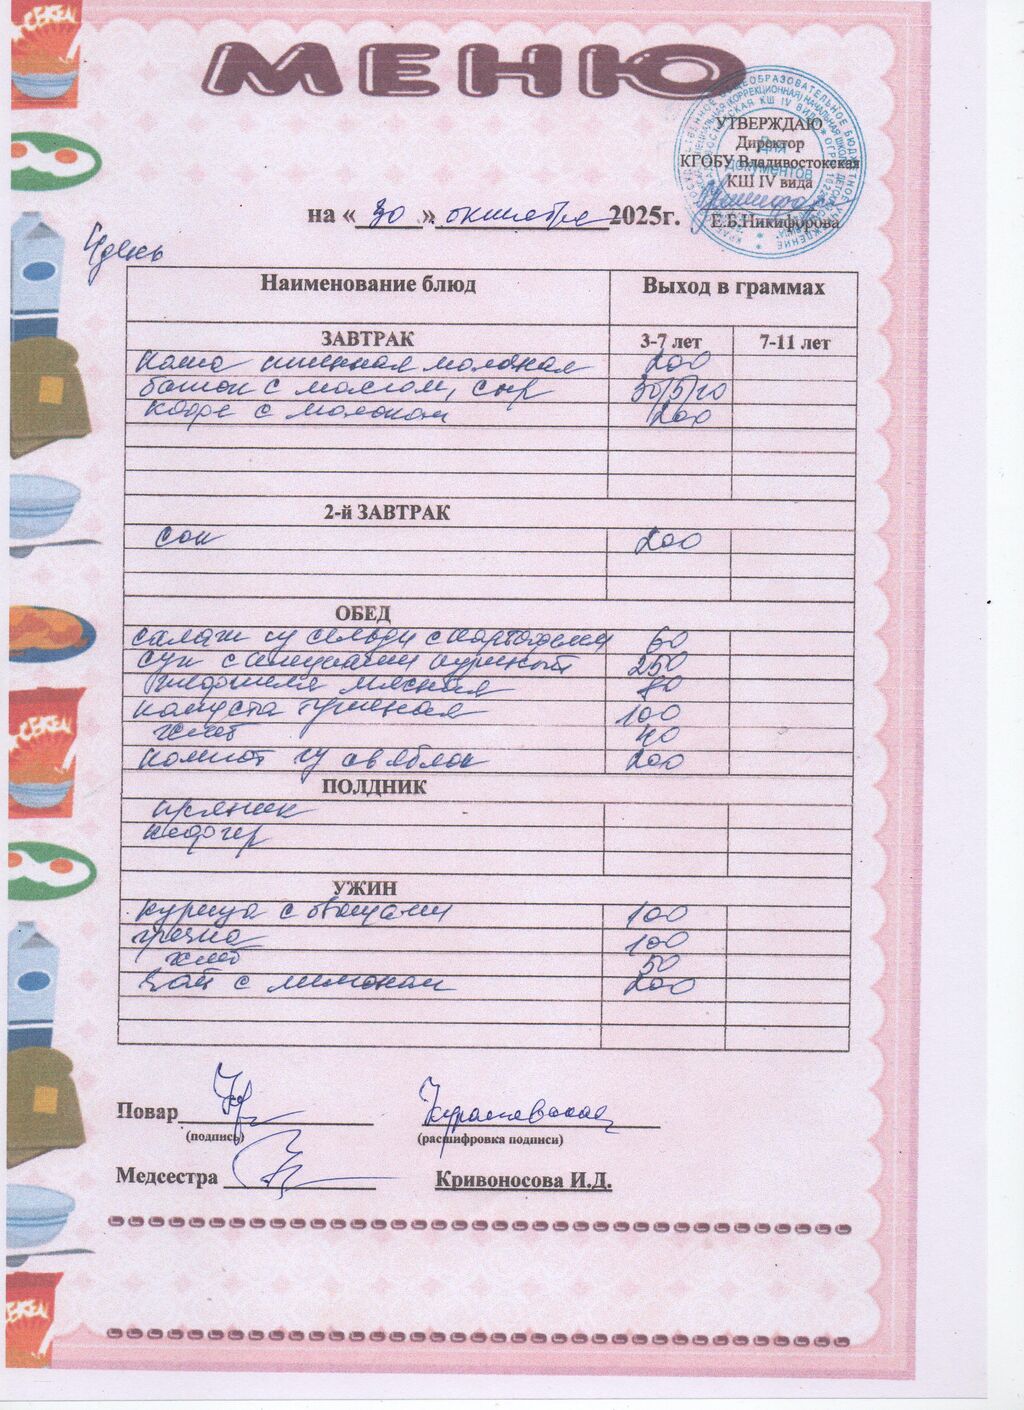 МЕНЮ
УТВЕРЖДАЮ
Директор
КГОБУ Владивостокская
КШ IV вида
Е.Б.Никифорова
Для документов
на « 30 » октября 2025г.
4 день
Наименование блюд Выход в граммах
ЗАВТРАК 3-7 лет 7-11 лет
каша пшенная молочная 200
батон с маслом, сыр 30/5/10
кофе с молоком 200
2-й ЗАВТРАК
сок 200
ОБЕД
салат из сельди с картофелем 60
суп с клецками куриный 250
мясная 80
капуста тушеная 100
хлеб 40
компот из св яблок 200
ПОЛДНИК
пряник
кефир
УЖИН
курица с овощами 100
гречка 100
хлеб 50
чай с лимоном 200
Повар
(подпись) (расшифровка подписи)
Медсестра Кривоносова И.Д.
СЕКЕЛ